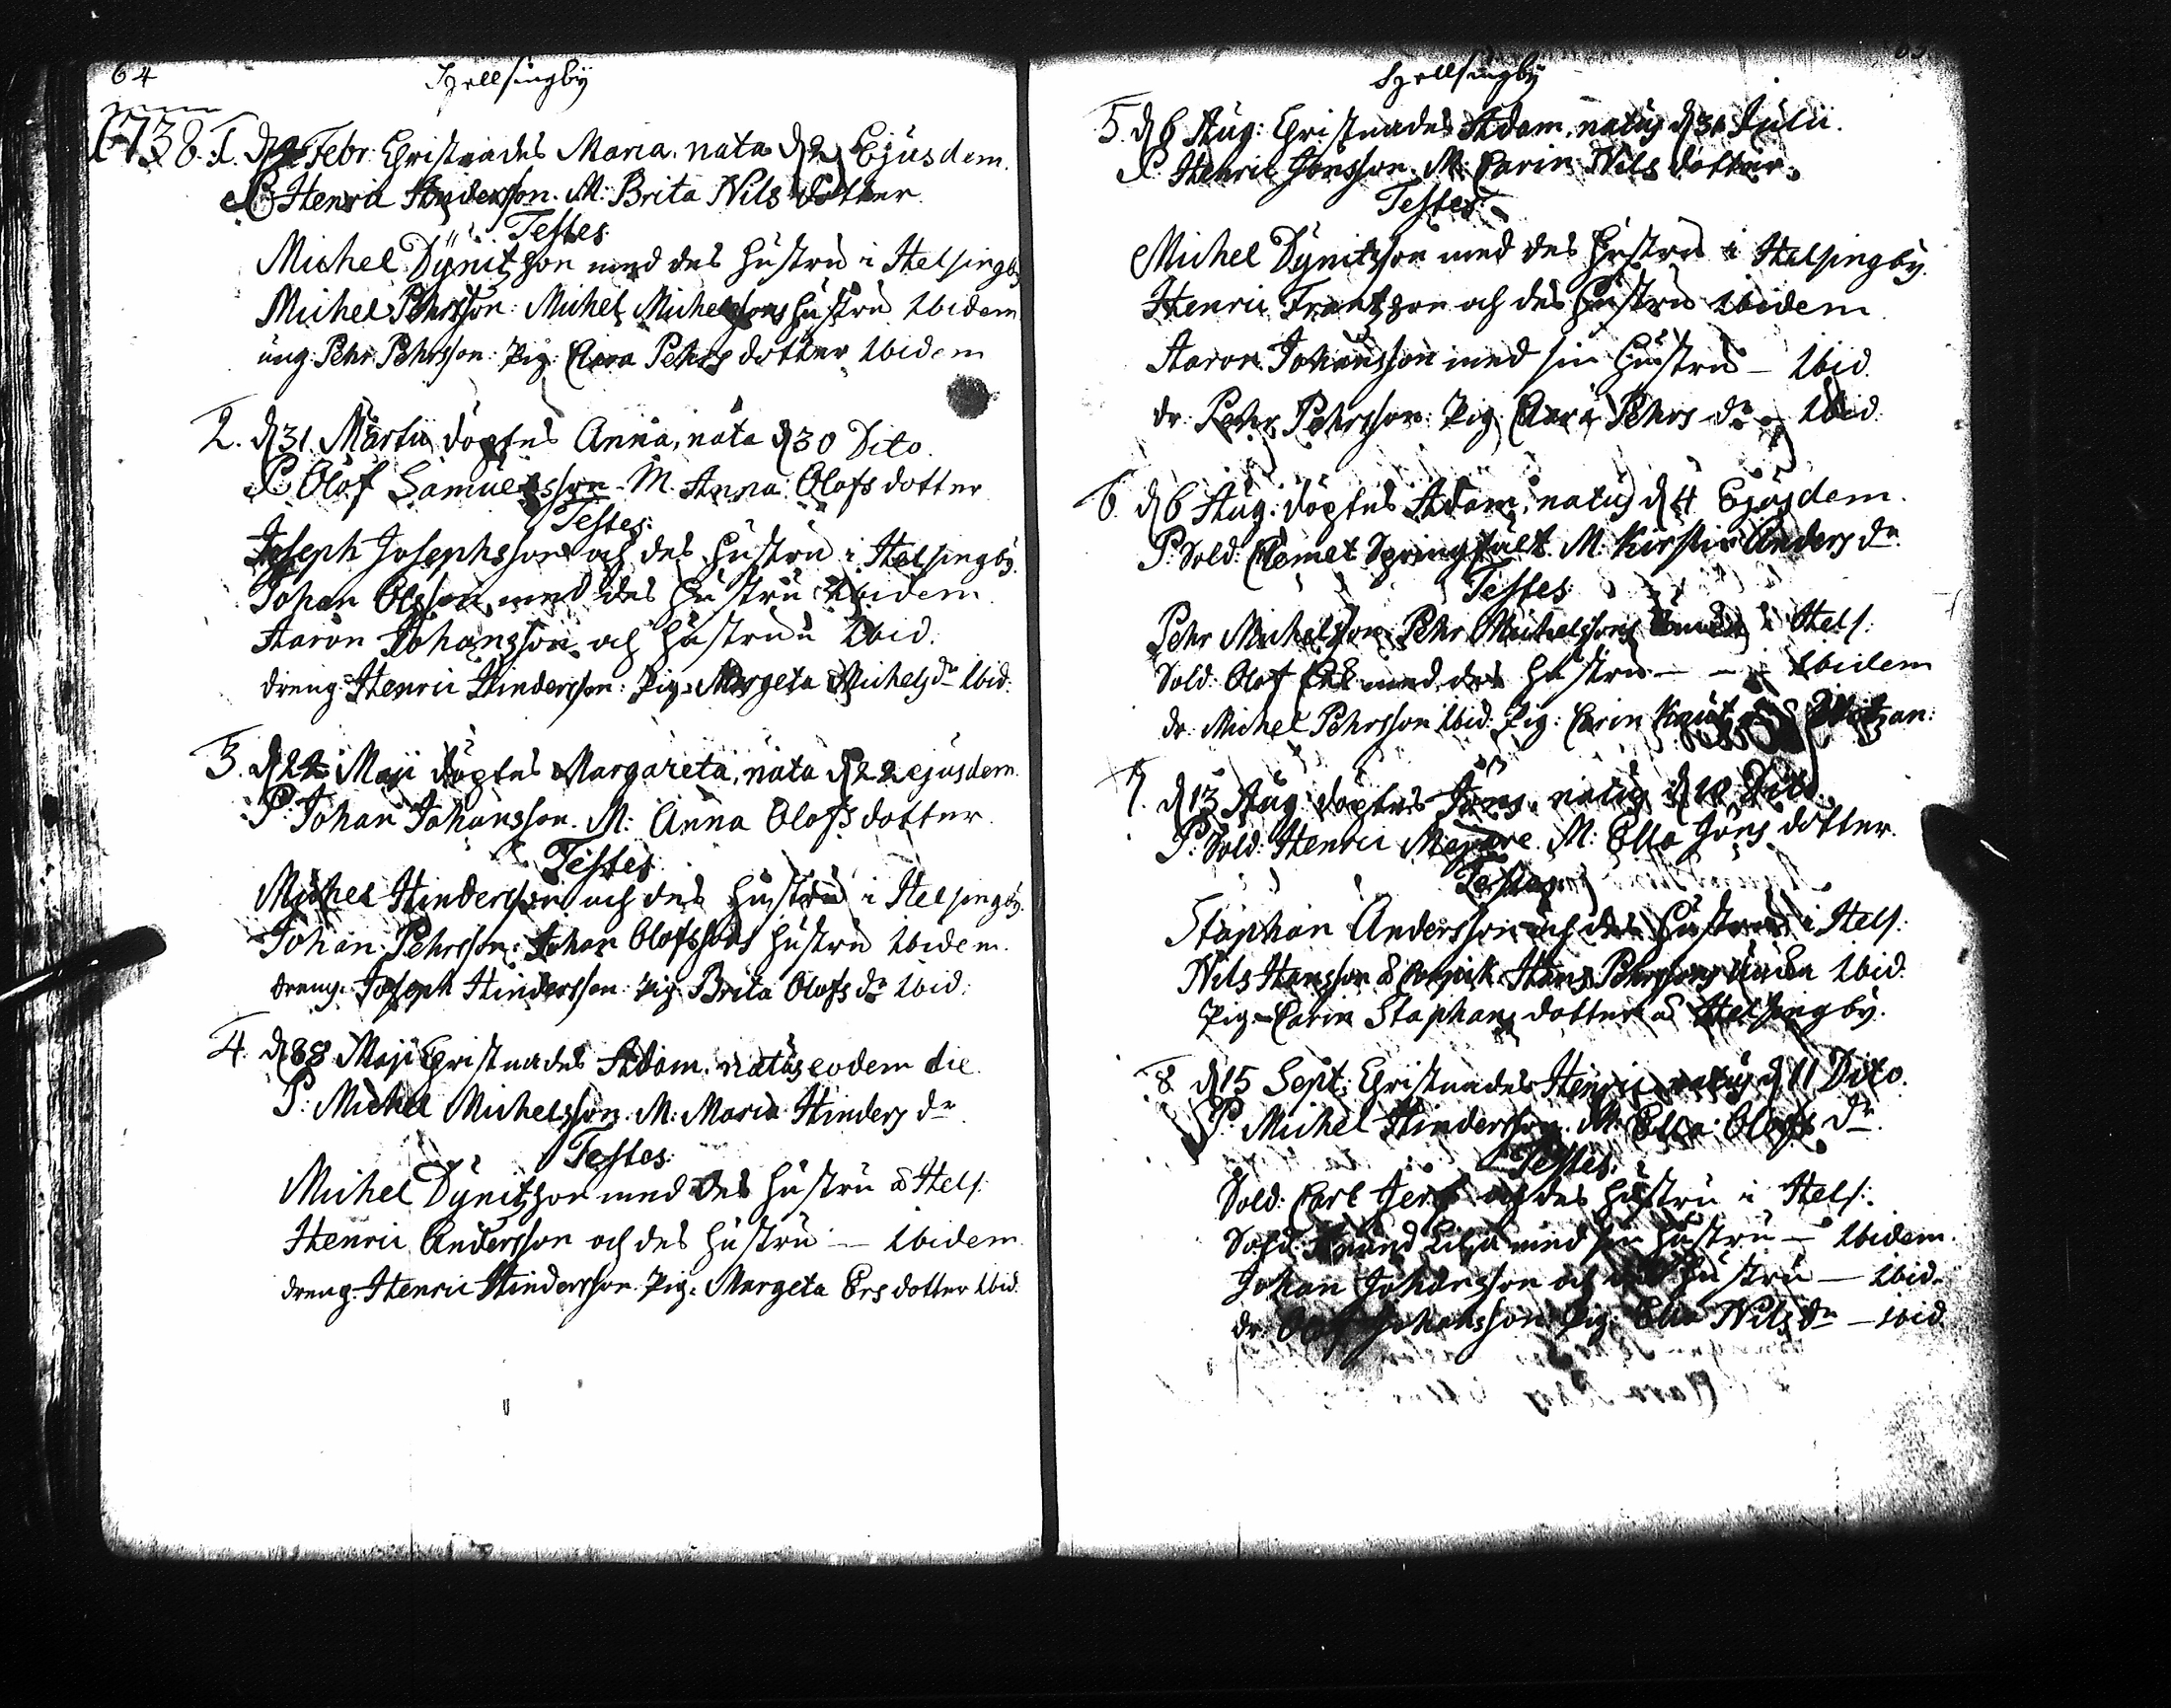 64
Hellsingby
1738. 1. d 2 Febr. Christnades Maria, nata d 2 Ejusdem.
P. Henric Andersson. M. Brita Nils dotter
Testes
Michel Dÿnitzson med des hustru i Helsingby
Michel Pehrsson: Michel Michelssons hustru Ibidem
ung Pehr Pehrsson: Pig: Clara Pehrs dotter Ibidem
2. d 31 Martii döptes Anna, nata d 30 Dito.
P. Olof Samuelsson. M. Anna Olofs dotter
Testes:
Joseph Josephsson och des hustru i Helsingby.
Johan Olsson med des hustru Ibidem
Aaron Johansson och hustru Ibid.
dreng Henric Hindersson: Pig: Margeta Michels dr Ibid:
3. d 24 Maji döptes Margareta, nata d 22 ejusdem.
P. Johan Johansson. M: Anna Olofs dotter.
Testes
Michel Hindersson och des hustru i Helsingby.
Johan Pehrsson: Johan Olofssons hustru Ibidem.
dreng. Joseph Hindersson: Pig Brita Olofs dr Ibid:
4. d 28 Maji Christnades Adam, natus eodem die
P: Michel Michelsson. M: Maria Hinders dr
Testes
Michel Dÿnitzson med des hustru i Hels:
Henric Andersson och des hustru — Ibidem
dreng. Henric Hindersson. Pig: Margeta Ers dotter Ibid.
Hellsingby
5. d 6 Aug: Christnades Adam, natus d 31 Julii.
P Henric Jönsson. M: Carin Nils dotter.
Testes:
Michel Dÿnitzson med des hustru i Helsingby
Henric Frantzson och des hustru Ibidem
Aaron Johansson med sin hustru — Ibid.
dr. Pehr Pehrsson: Pig Clara Pehrs dr Ibid.
6. d 6 Aug: döptes Adam, natus d 4 Ejusdem.
P. Sold: Clemet Springfält M. Kirstin Anders dr
Testes
Pehr Michelsson: Pehr Michelssons i Hels:
Sold: Olof med des hustru — — Ibidem
dr. Michel Pehrsson Ibid. Pig: Carin
7. d 13 Aug: döptes Jöns, natus d 10 Dito.
P: Sold: Henric M: Ella Jöns dotter.
Testes
Staphan Andersson och des hustru i Hels:
Nils Hansson Hans Pehrssons Ibid:
Pig: Carin Staphans dotter i Helsingby.
8. d 15 Sept: Christnades Henric, natus d 11 Dito.
P. Michel Hindersson. M. Ella Olofs dr
Testes
Sold: Carl Jerf och des hustru i Hels:
Sold: Lilja med sin hustru — Ibidem.
Johan Johansson och des hustru — Ibid.
dr. Olof Johansson: Pig: Ella Nils dr — Ibid